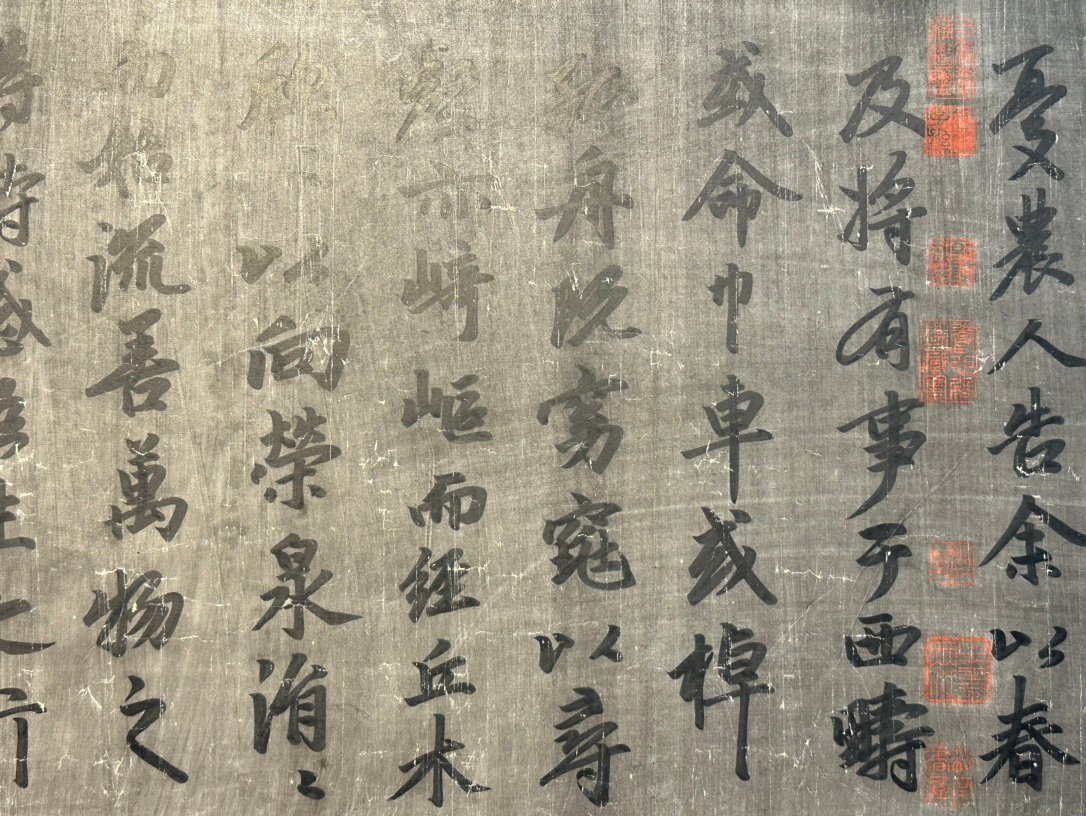 憂農人告余以春
及將有事于西疇
或命巾車或棹
孤舟既窈窕以尋
壑亦崎嶇而經丘木
欣〻以向榮泉涓〻
而始流善萬物之
得時感吾生之行